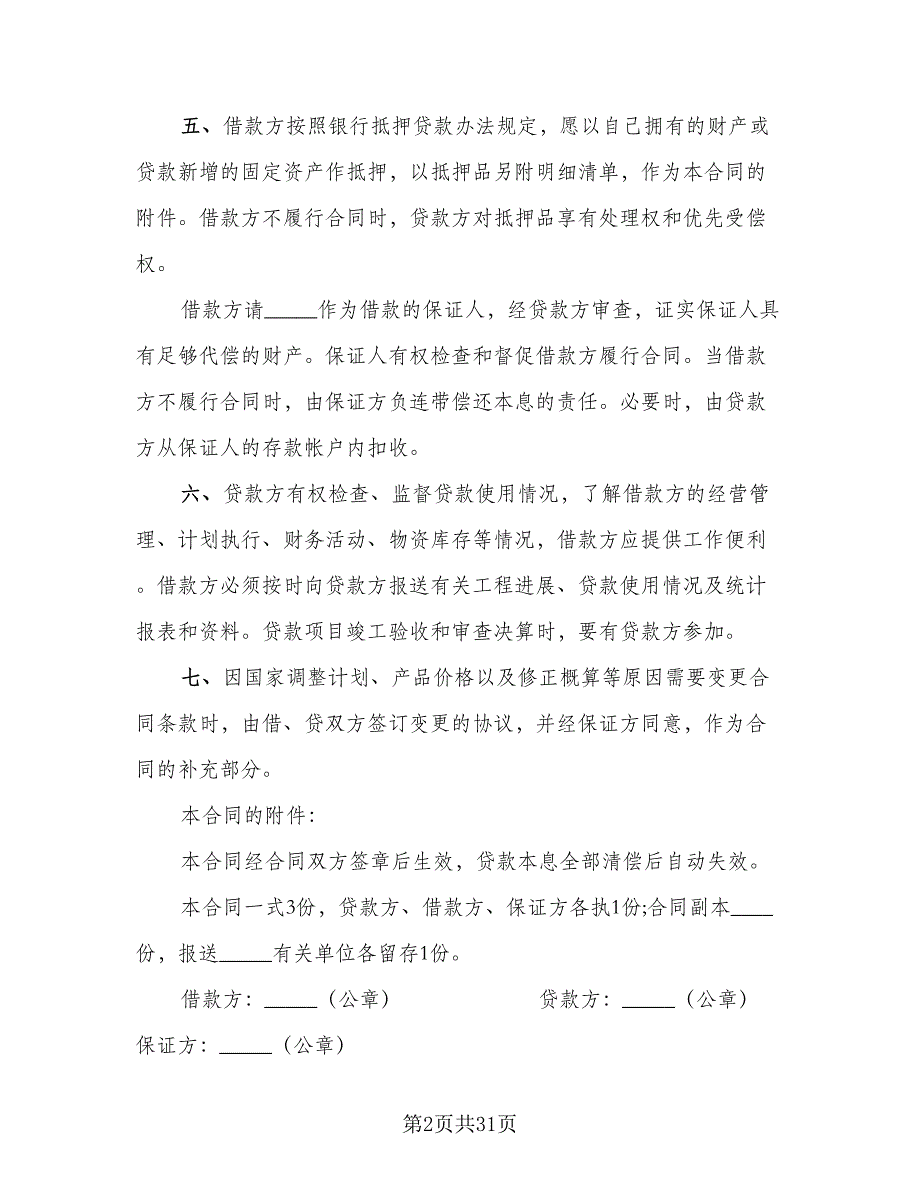 五、借款方按照银行抵押贷款办法规定，愿以自己拥有的财产或
贷款新增的固定资产作抵押，以抵押品另附明细清单，作为本合同的
附件。借款方不履行合同时，贷款方对抵押品享有处理权和优先受偿
权。
借款方请_____作为借款的保证人，经贷款方审查，证实保证人具
有足够代偿的财产。保证人有权检查和督促借款方履行合同。当借款
方不履行合同时，由保证方负连带偿还本息的责任。必要时，由贷款
方从保证人的存款帐户内扣收。
六、贷款方有权检查、监督贷款使用情况，了解借款方的经营管
理、计划执行、财务活动、物资库存等情况，借款方应提供工作便利
。借款方必须按时向贷款方报送有关工程进展、贷款使用情况及统计
报表和资料。贷款项目竣工验收和审查决算时，要有贷款方参加。
七、因国家调整计划、产品价格以及修正概算等原因需要变更合
同条款时，由借、贷双方签订变更的协议，并经保证方同意，作为合
同的补充部分。
本合同的附件：
本合同经合同双方签章后生效，贷款本息全部清偿后自动失效。
本合同一式3份，贷款方、借款方、保证方各执1份;合同副本____
份，报送_____有关单位各留存1份。
借款方：_____（公章） 贷款方：_____（公章）
保证方：_____（公章）
第2页共31页